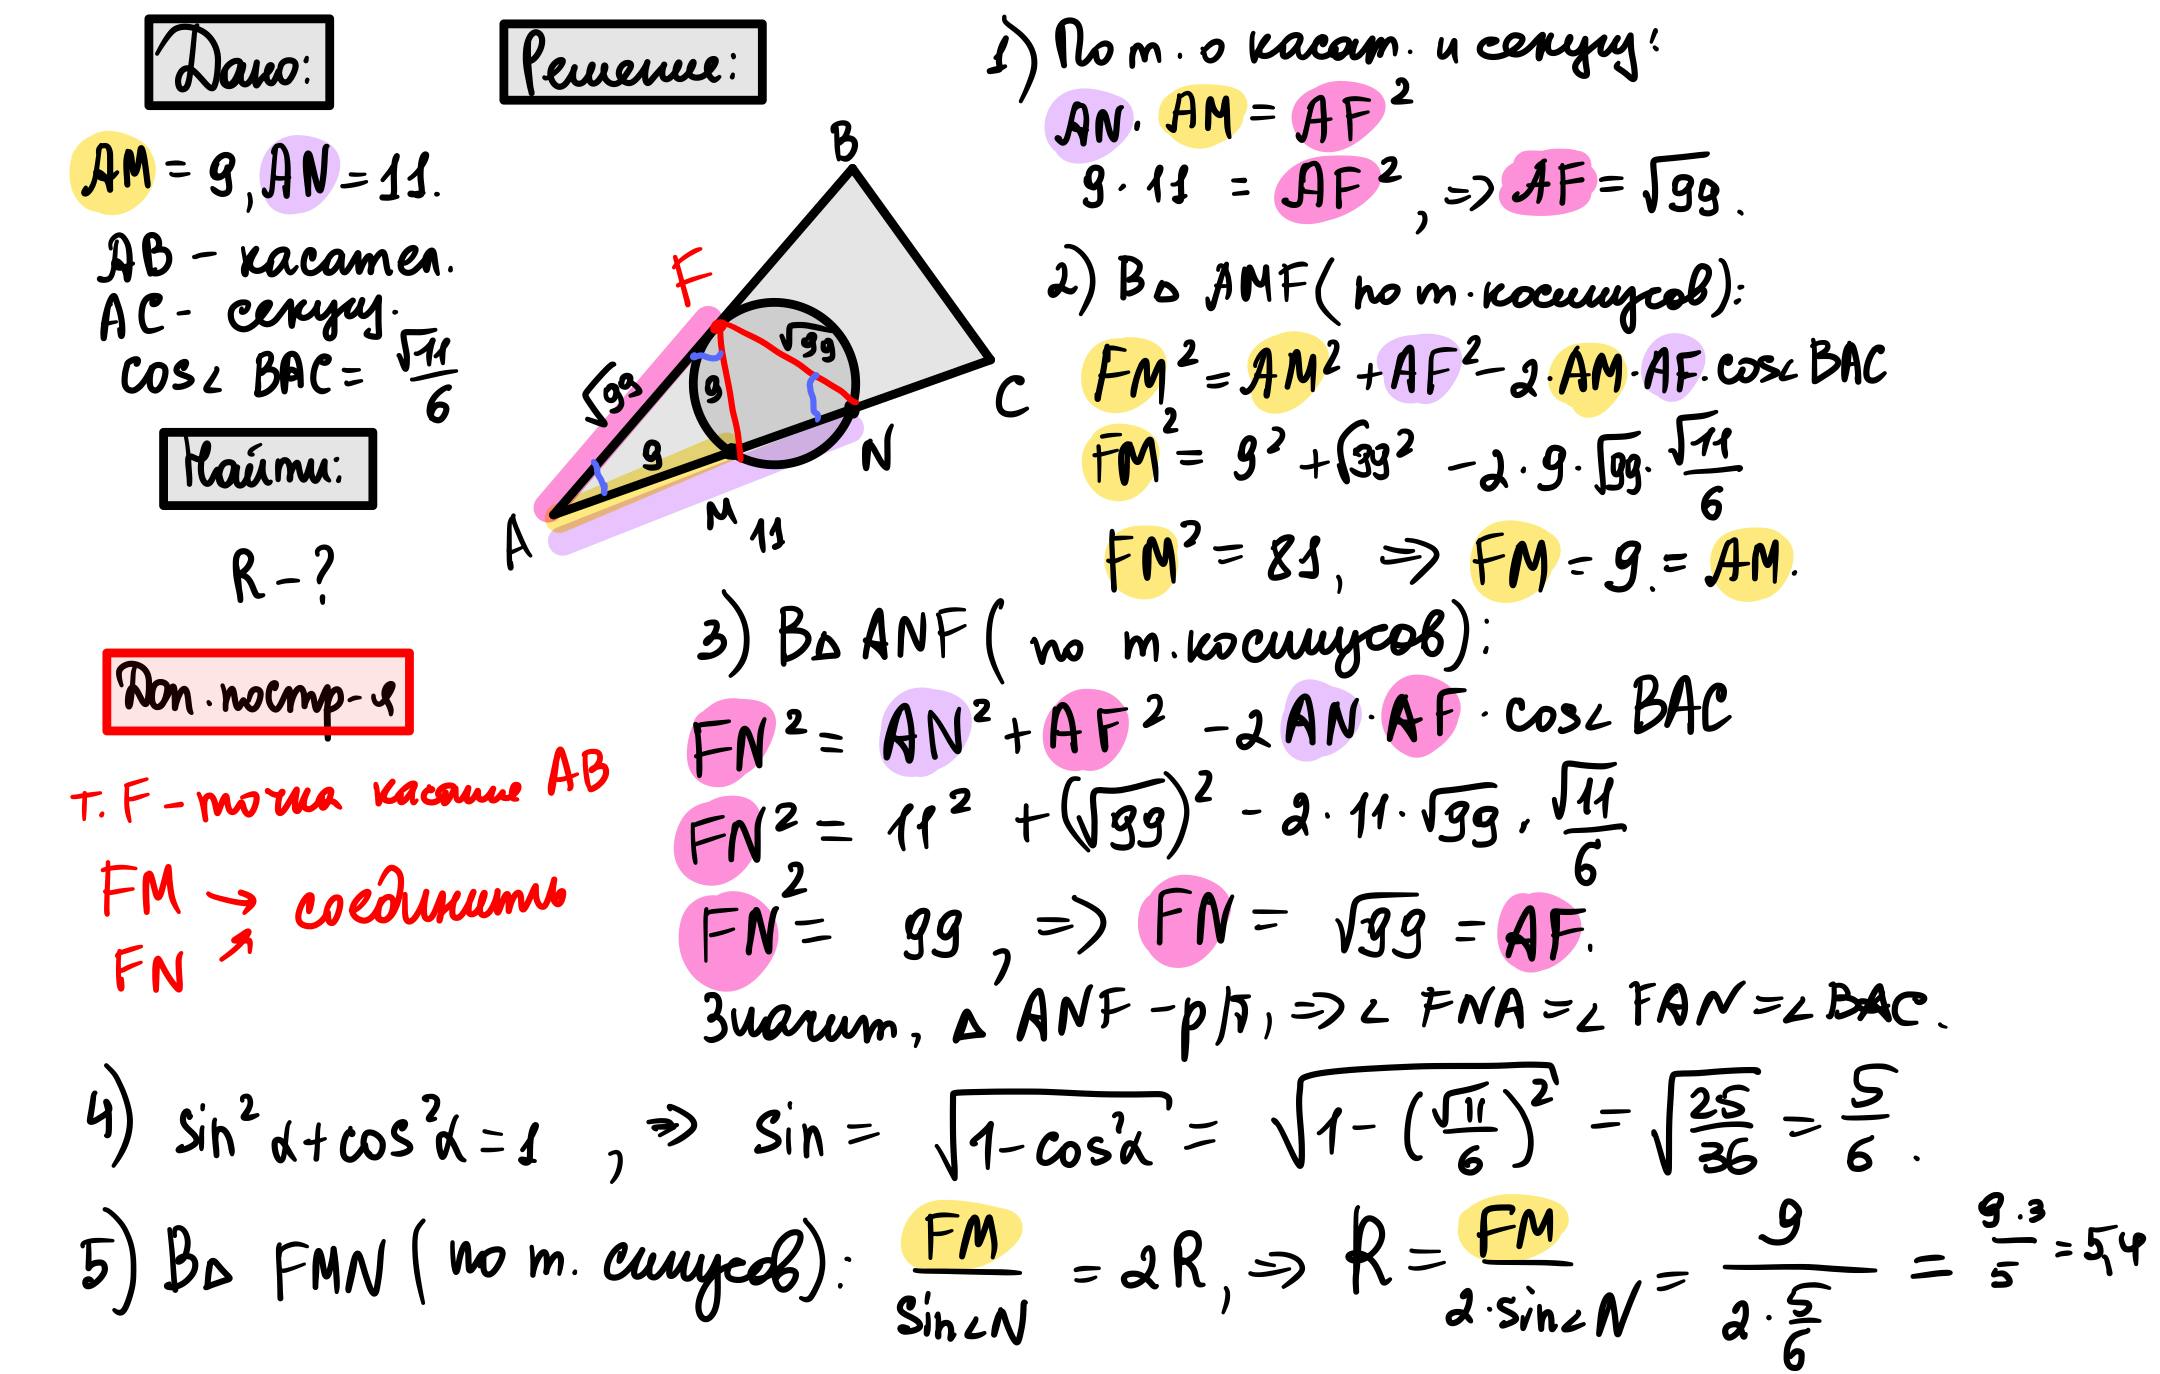 Дано:
AM = 9, AN = 11.
AB - касател.
AC - секущ.
cos∠ BAC = √11/6
Найти:
R - ?
Доп. постр-я
т. F - точка касание AB
FM → соединить
FN ↗
Решение:
B
F
√99
√99
9
9
C
N
M
11
A
1) По т. о касат. и секущ:
AN · AM = AF²
9 · 11 = AF², => AF = √99.
2) В △ AMF (по т. косинусов):
FM² = AM² + AF² - 2 · AM · AF · cos∠ BAC
FM² = 9² + √99² - 2 · 9 · √99 · √11/6
FM² = 81, => FM = 9 = AM.
3) В △ ANF (по т. косинусов):
FN² = AN² + AF² - 2 AN · AF · cos∠ BAC
FN² = 11² + (√99)² - 2 · 11 · √99 · √11/6
FN² = 99, => FN = √99 = AF.
Значит, △ ANF - р/б, => ∠ FNA = ∠ FAN = ∠ BAC.
4) sin² α + cos² α = 1, => sin = √(1 - cos² α) = √(1 - (√11/6)²) = √(25/36) = 5/6.
5) В △ FMN (по т. синусов): FM/sin∠N = 2R, => R = FM/(2 · sin∠N) = 9/(2 · 5/6) = 9 · 3/5 = 5,4